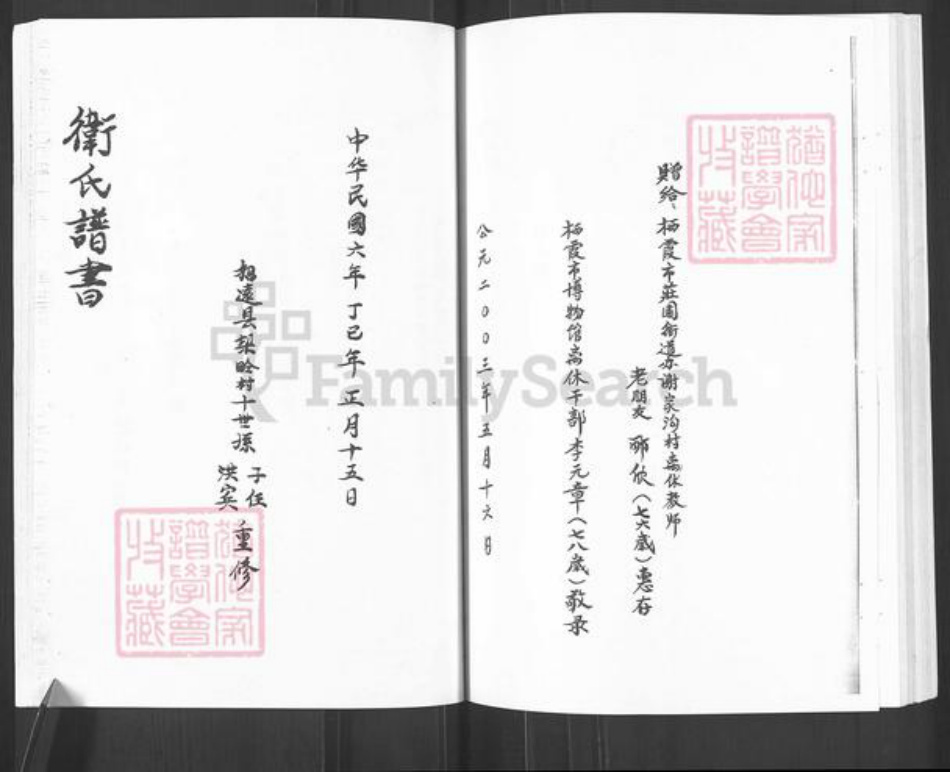 贈给、栖霞市莊园街道办谢家沟村离休教师
老朋友 欣(七六歲)惠存
栖霞市博物馆离休干部李元章(七八歲)敬录
公元二00三年五月十六日
中华民國六年 丁巳年 正月十五日
招遠县 村十世孫
子任
洪宾
重修
衛氏譜書
FamilySearch
猶他家
譜學會
收藏
猶他家
譜學會
收藏